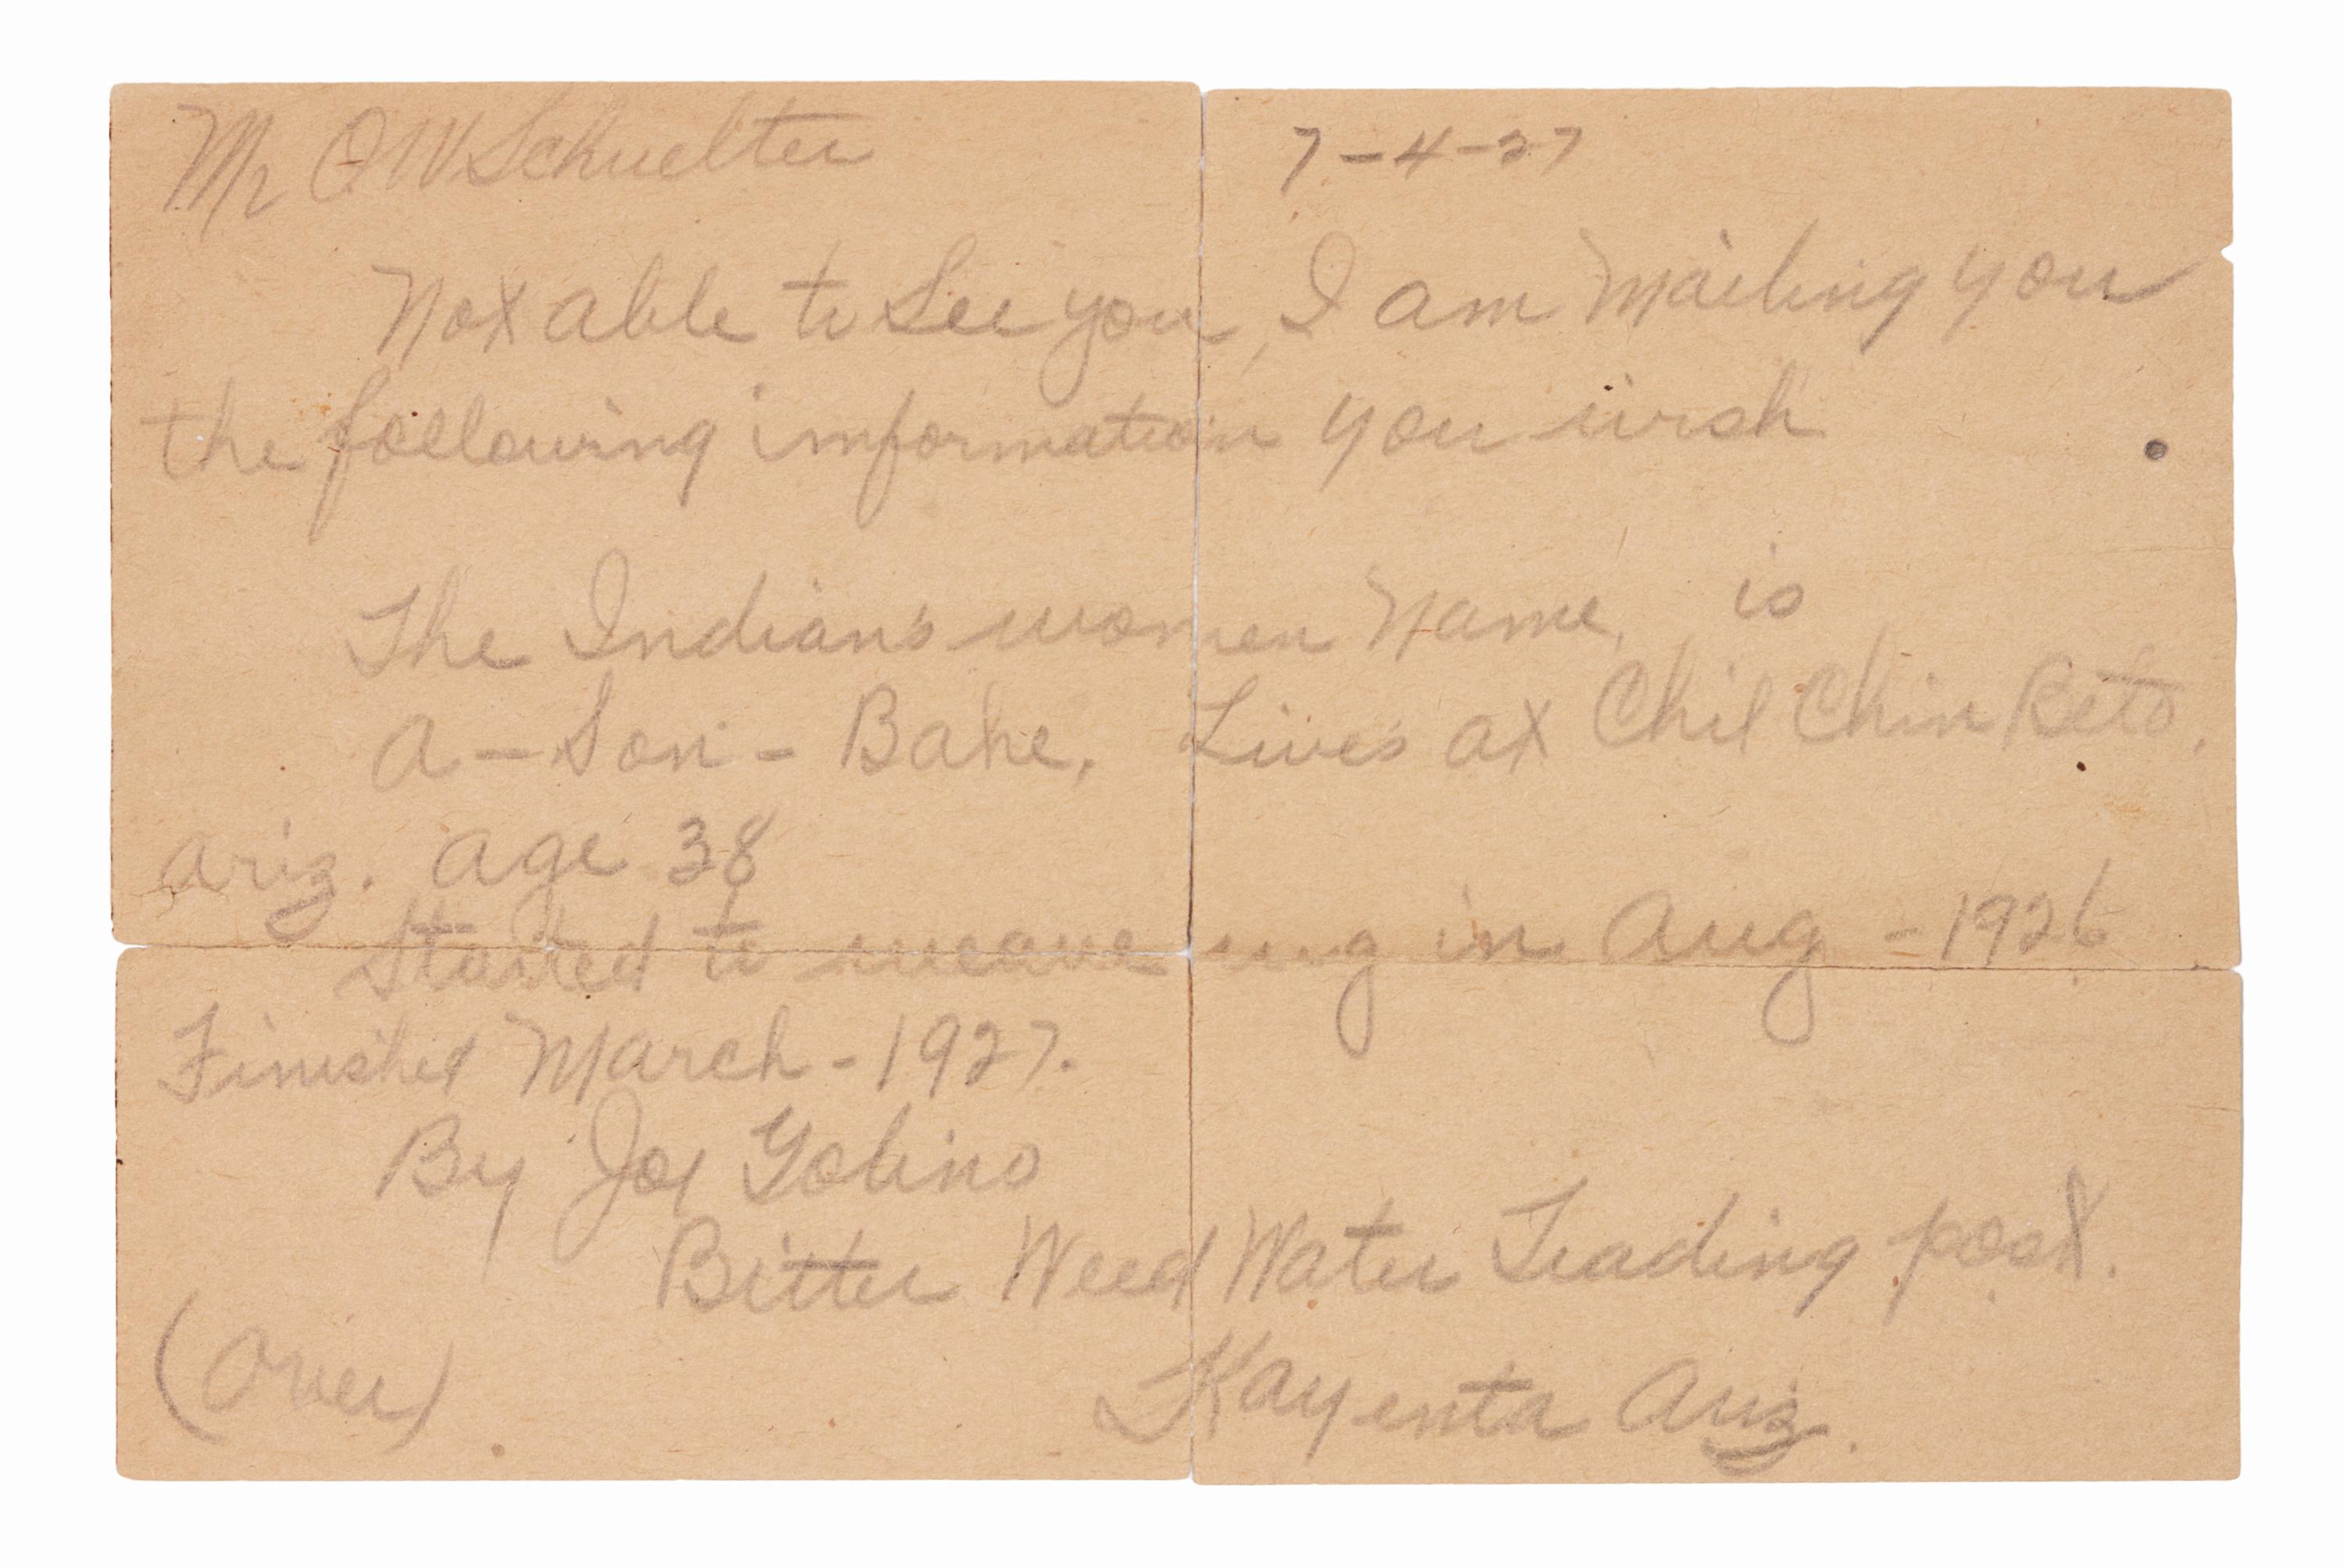 Mr O W Schuelter 7-4-27
Not able to See you, I am mailing you
the following information you wish
The Indians women Name, is
A-Son-Bahe. Lives at Chil Chin Beto,
Ariz. Age 38
Started to weave rug in Aug - 1926
Finished March - 1927.
By Joe
Bitter Weed Water Trading post.
(Over) Kayenta Ariz.